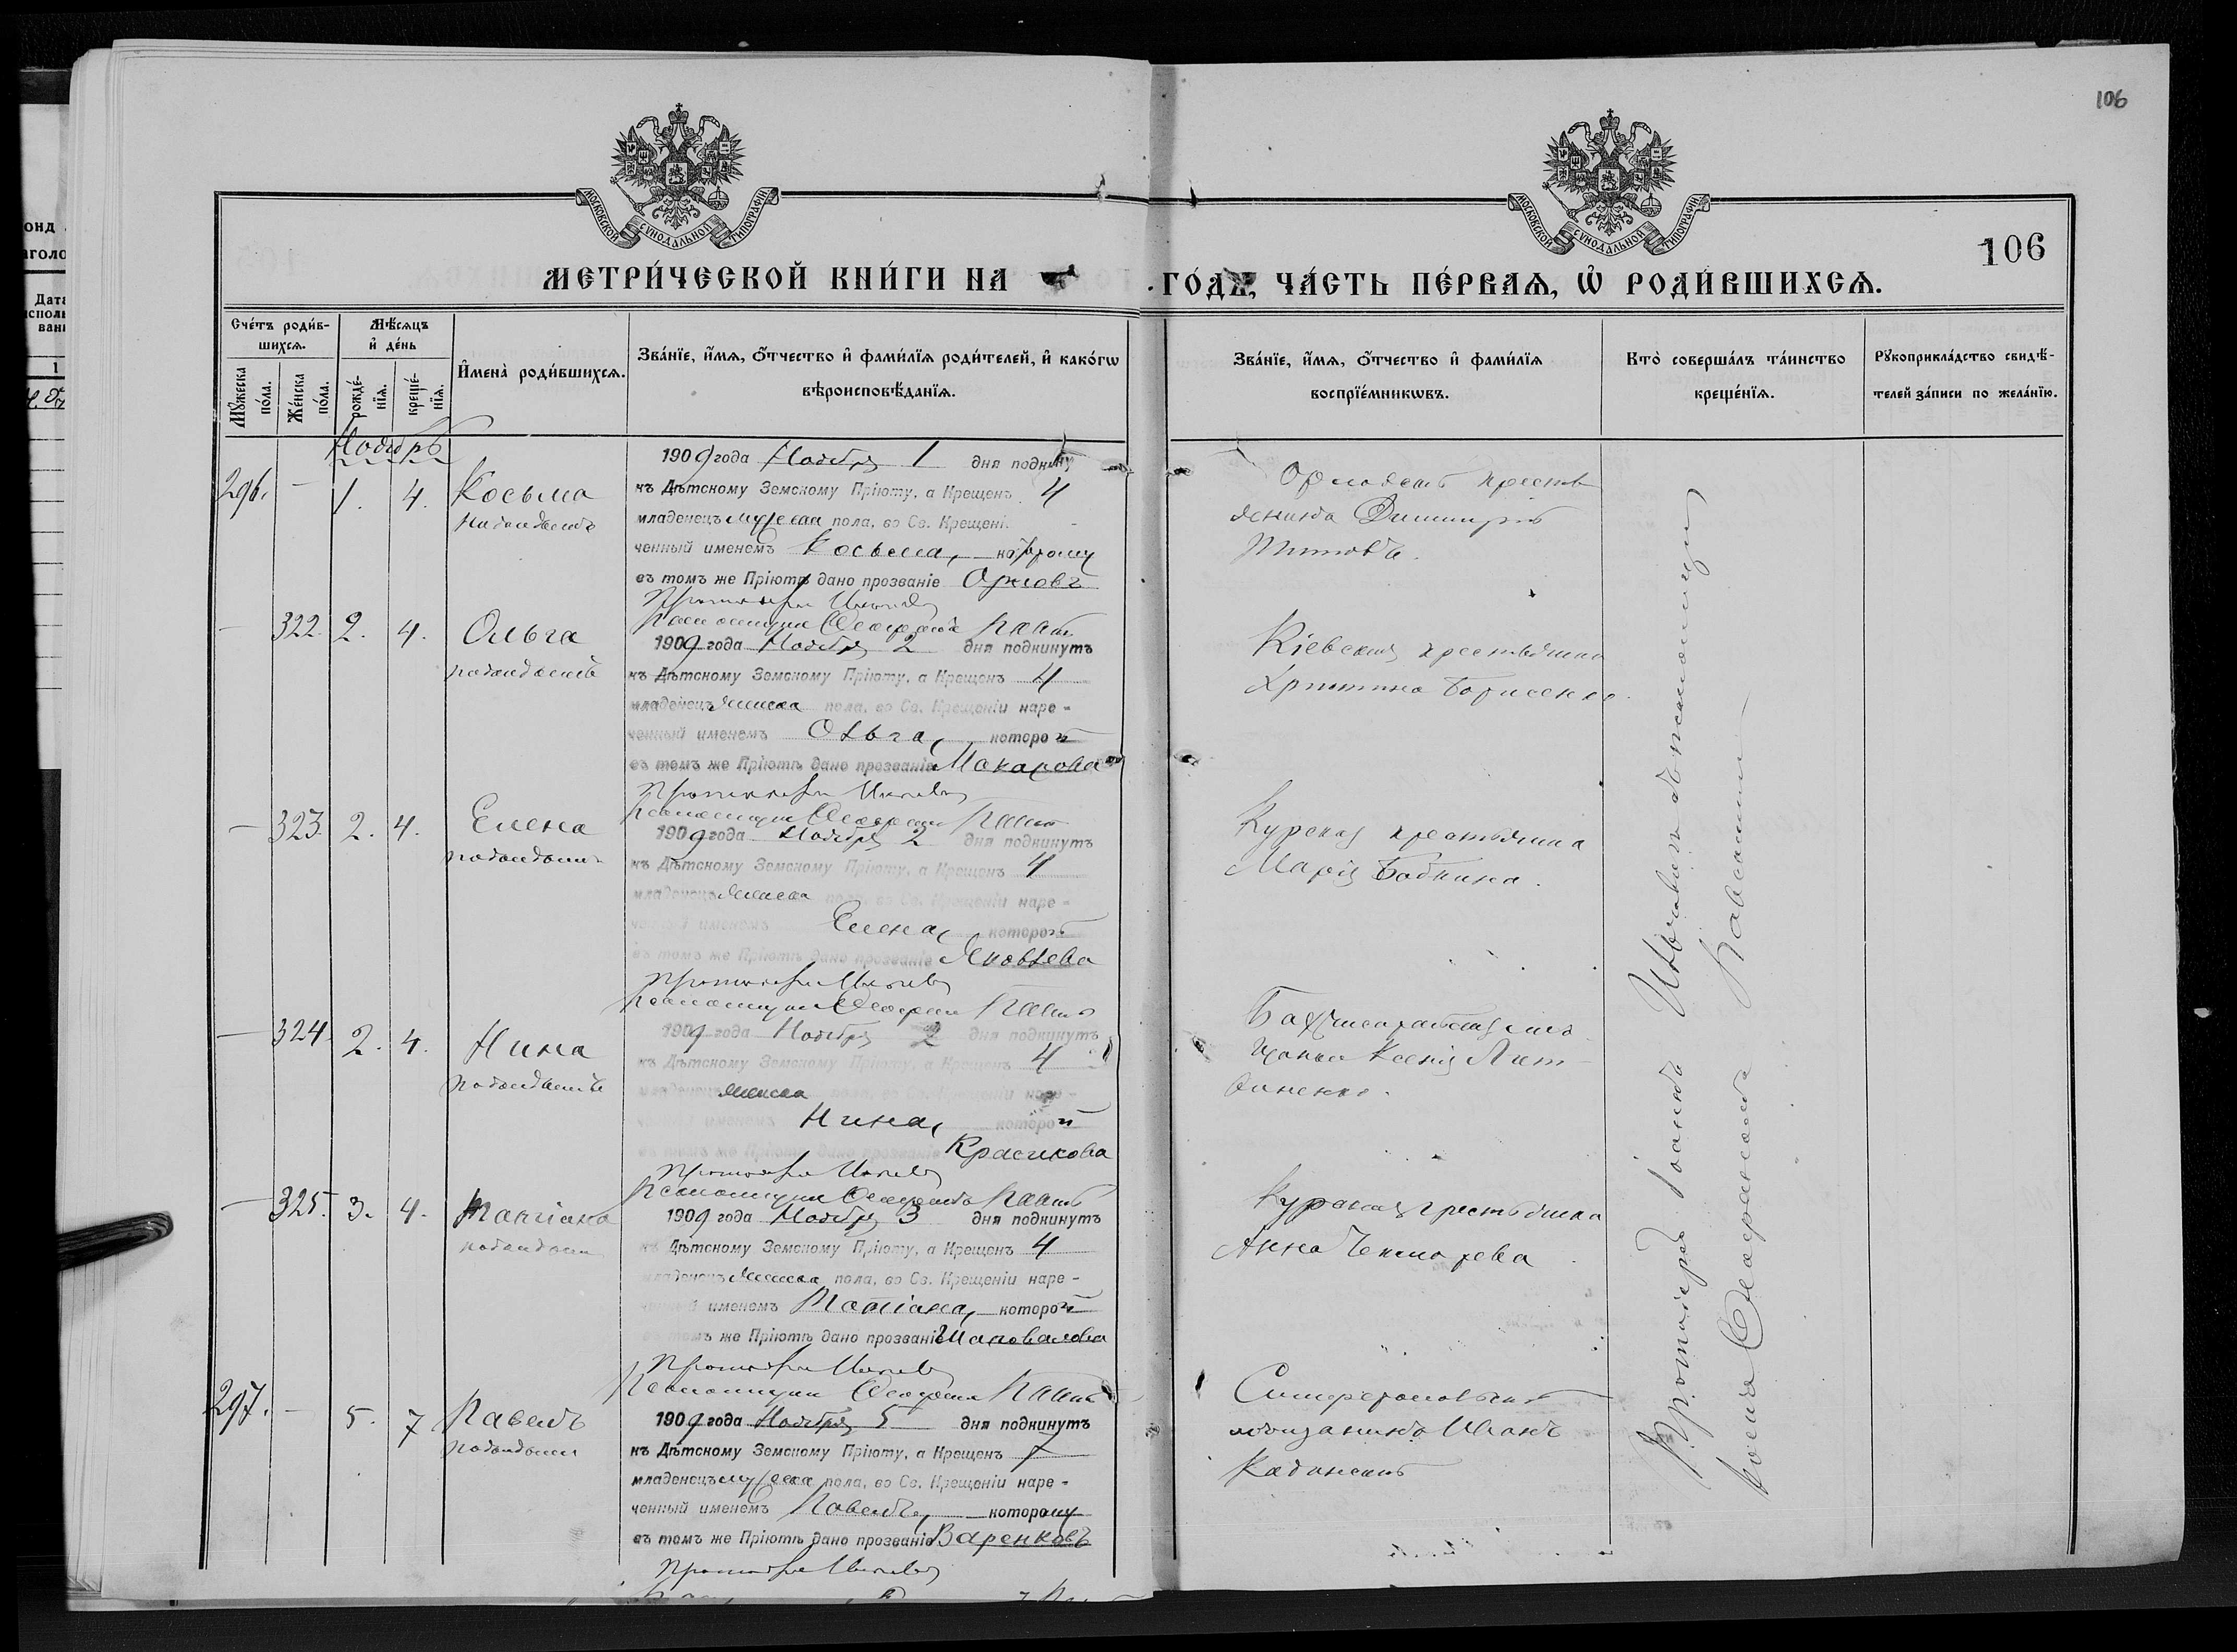 106
МОСКОВСКОЙ СѴНОДАЛЬНОЙ ТИПОГРАФІИ
МОСКОВСКОЙ СѴНОДАЛЬНОЙ ТИПОГРАФІИ
106
МЕТРИ́ЧЕСКОЙ КНИ́ГИ НА
ГО́ДЪ, ЧА́СТЬ ПЕ́РВАѦ, Ѡ҆ РОДИ́ВШИХСѦ.
Сче́тъ роди́в-
шихсѧ.
Мꙋ́жеска по́ла.
Же́нска по́ла.
Мѣ́сѧцъ
и҆ де́нь
рожде́-
нїѧ.
креще́-
нїѧ.
И҆мена̀ роди́вшихсѧ.
Зва́нїе, и҆́мѧ, ѻ҆́тчество и҆ фами́лїѧ роди́телей, и҆ како́гѡ
вѣроисповѣ́данїѧ.
Зва́нїе, и҆́мѧ, ѻ҆́тчество и҆ фами́лїѧ
воспрїе́мникѡвъ.
Кто̀ соверша́лъ та́инство
креще́нїѧ.
Рꙋкоприкла́дство свидѣ́-
телей за́писи по жела́нїю.
Ноябрь
296. — 1. 4. Косьма
1909 года Ноября 1 дня подкину
къ Дѣтскому Земскому Пріюту, а Крещенъ 4
младенецъ мужеска пола, во Св. Крещені
ченный именемъ Косьма, которому
въ томъ же Пріютѣ дано прозваніе Орловъ
Орловскій крестья
янинъ Димитрій
Титовъ.
— 322. 2. 4. Ольга
подкидышъ
1909 года Ноября 2 дня подкинутъ
къ Дѣтскому Земскому Пріюту, а Крещенъ 4
младенецъ женска пола, во Св. Крещеніи наре-
ченный именемъ Ольга, которой
въ томъ же Пріютѣ дано прозваніе Макарова
Кіевская крестьянка
Христина Борисенко.
— 323. 2. 4. Елена
подкидышъ
1909 года Ноября 2 дня подкинутъ
къ Дѣтскому Земскому Пріюту, а Крещенъ 4
младенецъ женска пола, во Св. Крещеніи наре-
ченный именемъ Елена, которой
въ томъ же Пріютѣ дано прозваніе Яковлева
Курская крестьянка
Марія Бабкина.
— 324. 2. 4. Нина
подкидышъ
1909 года Ноября 2 дня подкинутъ
къ Дѣтскому Земскому Пріюту, а Крещенъ 4
младенецъ женска пола, во Св. Крещеніи наре-
ченный именемъ Нина, которой
въ томъ же Пріютѣ дано прозваніе Красикова
Бахчисарайская мѣ
щанка Ксенія Лит-
виненко.
— 325. 3. 4. Татіана
подкидышъ
1909 года Ноября 3 дня подкинутъ
къ Дѣтскому Земскому Пріюту, а Крещенъ 4
младенецъ женска пола, во Св. Крещеніи наре-
ченный именемъ Татіана, которой
въ томъ же Пріютѣ дано прозваніе Шаповалова
Курская крестьянка
Анна Чекмарева
297. — 5. 7 Павелъ
подкидышъ
1909 года Ноября 5 дня подкинутъ
къ Дѣтскому Земскому Пріюту, а Крещенъ 7
младенецъ мужеска пола, во Св. Крещеніи наре-
ченный именемъ Павелъ, которому
въ томъ же Пріютѣ дано прозваніе Варенковъ
Симферопольскій
мѣщанинъ Иванъ
Протоіерей Іоаннъ